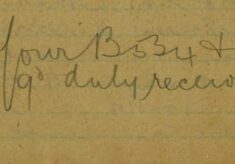 four B5B4 &
9d duly receiv